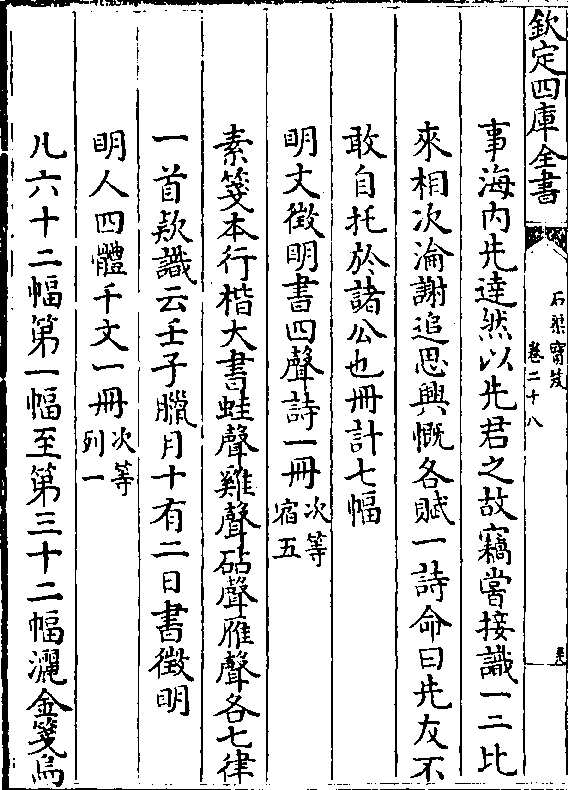 欽定四庫全書
石渠寶笈
卷二十八
事海内先達然以先君之故竊嘗接識一二比
來相次淪謝追思興慨各賦一詩命曰先友不
敢自托於諸公也冊計七幅
明文徵明書四聲詩一冊次等
宿五
素箋本行楷大書蛙聲雞聲砧聲雁聲各七律
一首款識云壬子臘月十有二日書徵明
明人四體千文一冊次等
列一
凡六十二幅第一幅至第三十二幅灑金箋烏